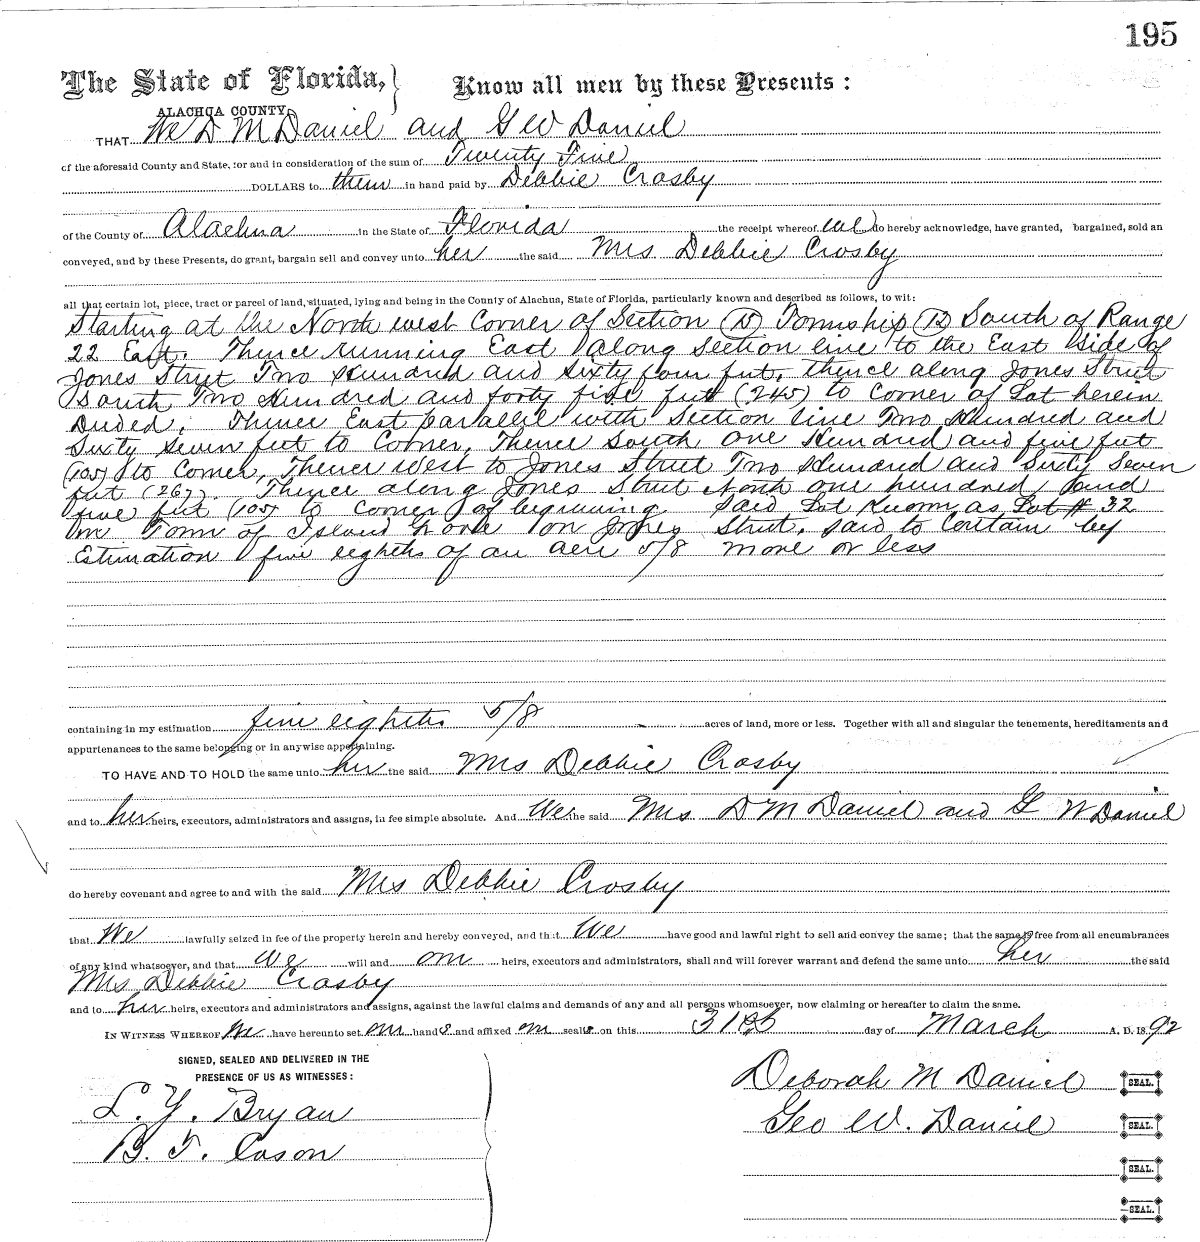 195
The State of Florida, } Know all men by these Presents:
ALACHUA COUNTY,
THAT We D M Daniel and G W Daniel
of the aforesaid County and State, for and in consideration of the sum of Twenty Five
DOLLARS to them in hand paid by Debbie Crosby
of the County of Alachua in the State of Florida the receipt whereof we do hereby acknowledge, have granted, bargained, sold an
conveyed, and by these Presents, do grant, bargain sell and convey unto her the said Mrs Debbie Crosby
all that certain lot, piece, tract or parcel of land, situated, lying and being in the County of Alachua, State of Florida, particularly known and described as follows, to wit:
Starting at the North west Corner of Section Township (12) South of Range
22 East. Thence running East along section line to the East side of
Jones Street Two Hundred and sixty four feet, thence along Jones Street
South Two Hundred and forty five feet (245) to Corner of Lot herein
Deeded. Thence East parallel with Section line Two Hundred and
Sixty Seven feet to Corner, Thence South one Hundred and five feet
(105) to Corner, Thence West to Jones Street Two Hundred and Sixty Seven
feet (267). Thence along Jones Street North one hundred and
five feet (105) to Corner of beginning Said Lot Known as Lot # 32
in Town of Island Grove on Jones Street. said to Contain by
Estimation five eighths of an acre 5/8 more or less
containing in my estimation five eighths 5/8 acres of land, more or less. Together with all and singular the tenements, hereditaments and
appurtenances to the same belonging or in anywise appertaining.
TO HAVE AND TO HOLD the same unto her the said Mrs Debbie Crosby
and to her heirs, executors, administrators and assigns, in fee simple absolute. And We the said Mrs D M Daniel and G W Daniel
do hereby covenant and agree to and with the said Mrs Debbie Crosby
that We lawfully seized in fee of the property herein and hereby conveyed, and that We have good and lawful right to sell and convey the same; that the same is free from all encumbrances
of any kind whatsoever, and that we will and our heirs, executors and administrators, shall and will forever warrant and defend the same unto her the said
Mrs Debbie Crosby
and to her heirs, executors and administrators and assigns, against the lawful claims and demands of any and all persons whomsoever, now claiming or hereafter to claim the same.
IN WITNESS WHEREOF We have hereunto set our hands and affixed our seals on this 31st day of March A. D. 1892
SIGNED, SEALED AND DELIVERED IN THE
PRESENCE OF US AS WITNESSES:
Deborah M Daniel SEAL.
L. Y. Bryan
Geo W. Daniel SEAL.
B. T. Cason
SEAL.
SEAL.